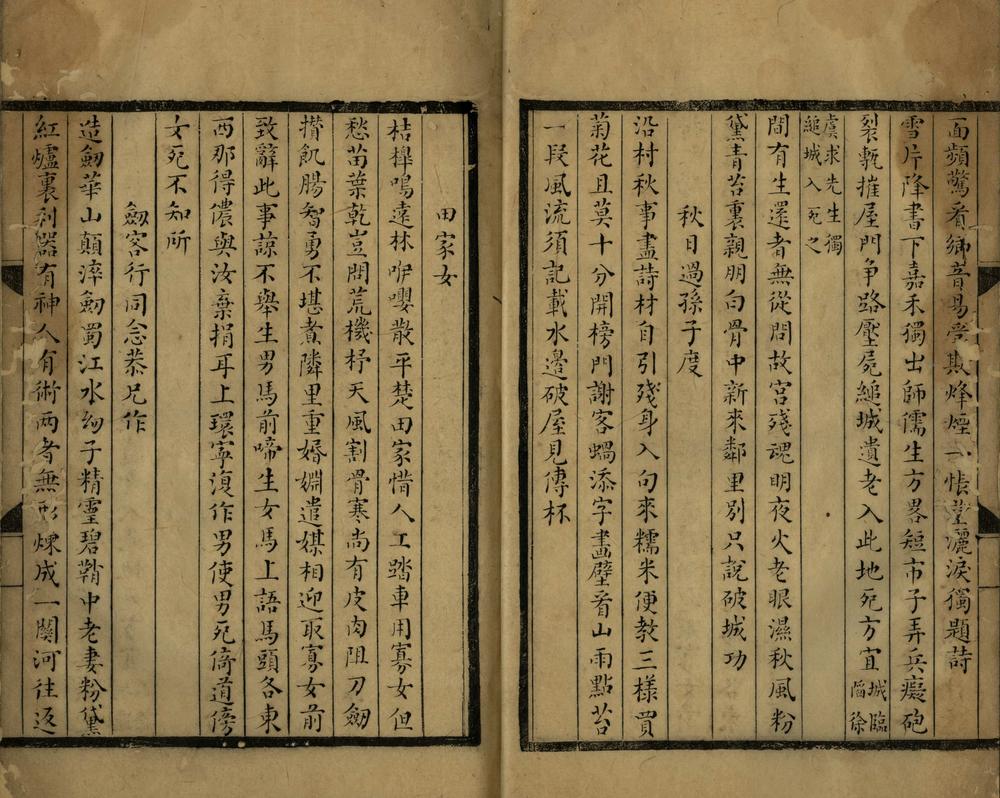 面頻驚看鄉音易受欺烽煙一悵灑淚獨題詩
雪片降書下嘉禾獨出師儒生方畧短市子弄兵癡砲
裂甎摧屋門爭路壓屍縋城遺老入此地死方宜城臨陷徐
虞求先生獨縋城入死之
間有生還者無從問故宮殘魂明夜火老眼濕秋風粉
黛青苔裏親朋白骨中新來鄰里別只說破城功
秋日過孫子度
沿村秋事盡詩材自引殘身入句來糯米便教三樣買
菊花且莫十分開榜門謝客蝸添字畫壁看山雨點苔
一段風流須記載水邊破屋見傳杯
田家女
桔橰鳴遠林咿嚶散平楚田家惜人工踏車用寡女但
愁苗葉乾豈問荒機杼天風割骨寒尚有皮肉阻刀劒
攢飢腸智勇不堪煮隣里重婚姻遣媒相迎取寡女前
致辭此事諒不舉生男馬前啼生女馬上語馬頭各東
西那得儂與汝棄捐耳上環寧復作男使男死倚道傍
女死不知所
劒客行同念恭兄作
造劒華山顛淬劒蜀江水幼子精靈碧鞘中老妻粉黛
紅爐裏利器有神人有術兩者無形煉成一關河往返